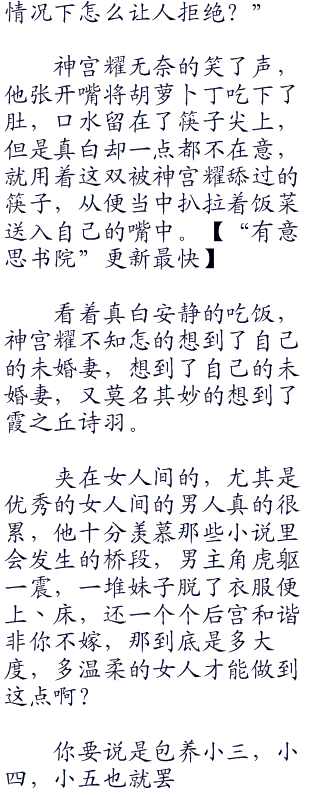 情况下怎么让人拒绝？”
神宫耀无奈的笑了声，
他张开嘴将胡萝卜丁吃下了
肚，口水留在了筷子尖上，
但是真白却一点都不在意，
就用着这双被神宫耀舔过的
筷子，从便当中扒拉着饭菜
送入自己的嘴中。【“有意
思书院”更新最快】
看着真白安静的吃饭，
神宫耀不知怎的想到了自己
的未婚妻，想到了自己的未
婚妻，又莫名其妙的想到了
霞之丘诗羽。
夹在女人间的，尤其是
优秀的女人间的男人真的很
累，他十分羡慕那些小说里
会发生的桥段，男主角虎躯
一震，一堆妹子脱了衣服便
上丶床，还一个个后宫和谐
非你不嫁，那到底是多大
度，多温柔的女人才能做到
这点啊？
你要说是包养小三，小
四，小五也就罢